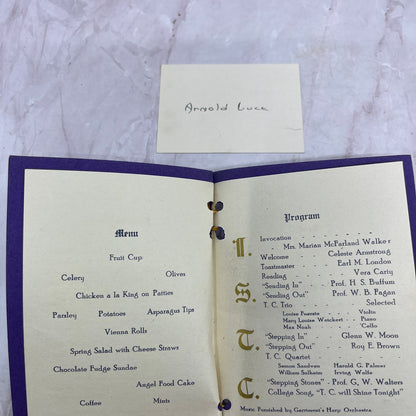 Arnold Luck
Menu
Fruit Cup
Celery Olives
Chicken a la King on Patties
Parsley Potatoes Asparagus Tips
Vienna Rolls
Spring Salad with Cheese Straws
Chocolate Fudge Sundae
Angel Food Cake
Coffee Mints
Program
I. S. T. C.
Invocation
Mrs. Marian McFarland Walker
Welcome Celeste Armstrong
Toastmaster Earl M. London
Reading Vera Cariy
"Sending In" Prof. H. S. Buffum
"Sending Out" Prof. W. B. Fagan
T. C. Trio Selected
Louise Fuersts Violin
Mary Louise Weickert Piano
Max Noah 'Cello
"Stepping In" Glenn W. Moon
"Stepping Out" Roy E. Brown
T. C. Quartet
Simon Sandven Harold G. Palmer
William Selheim Irving Wolfe
"Stepping Stones" Prof. G. W. Walters
College Song, "T. C. will Shine Tonight"
Music Furnished by Garrteust's Harp Orchestra